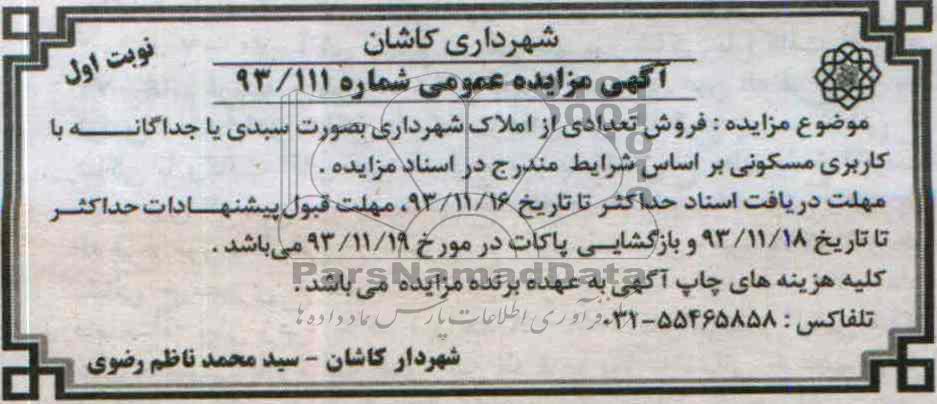 شهرداری کاشان
نوبت اول
آگهی مزایده عمومی شماره ۹۳/۱۱۱
موضوع مزایده : فروش تعدادی از املاک شهرداری بصورت سبدی یا جداگانــــه با
کاربری مسکونی بر اساس شرایط مندرج در اسناد مزایده .
مهلت دریافت اسناد حداکثر تا تاریخ ۹۳/۱۱/۱۶، مهلت قبول پیشنهــادات حداکثـر
تا تاریخ ۹۳/۱۱/۱۸ و بازگشایـی پاکات در مورخ ۹۳/۱۱/۱۹ می‌باشد .
ParsNamadData
کلیه هزینه های چاپ آگهی به عهده برنده مزایده می باشد .
فرآوری اطلاعات پارس نماد داده ها
تلفاکس : ۵۵۴۶۵۸۵۸-۰۳۱
شهردار کاشان - سید محمد ناظم رضوی